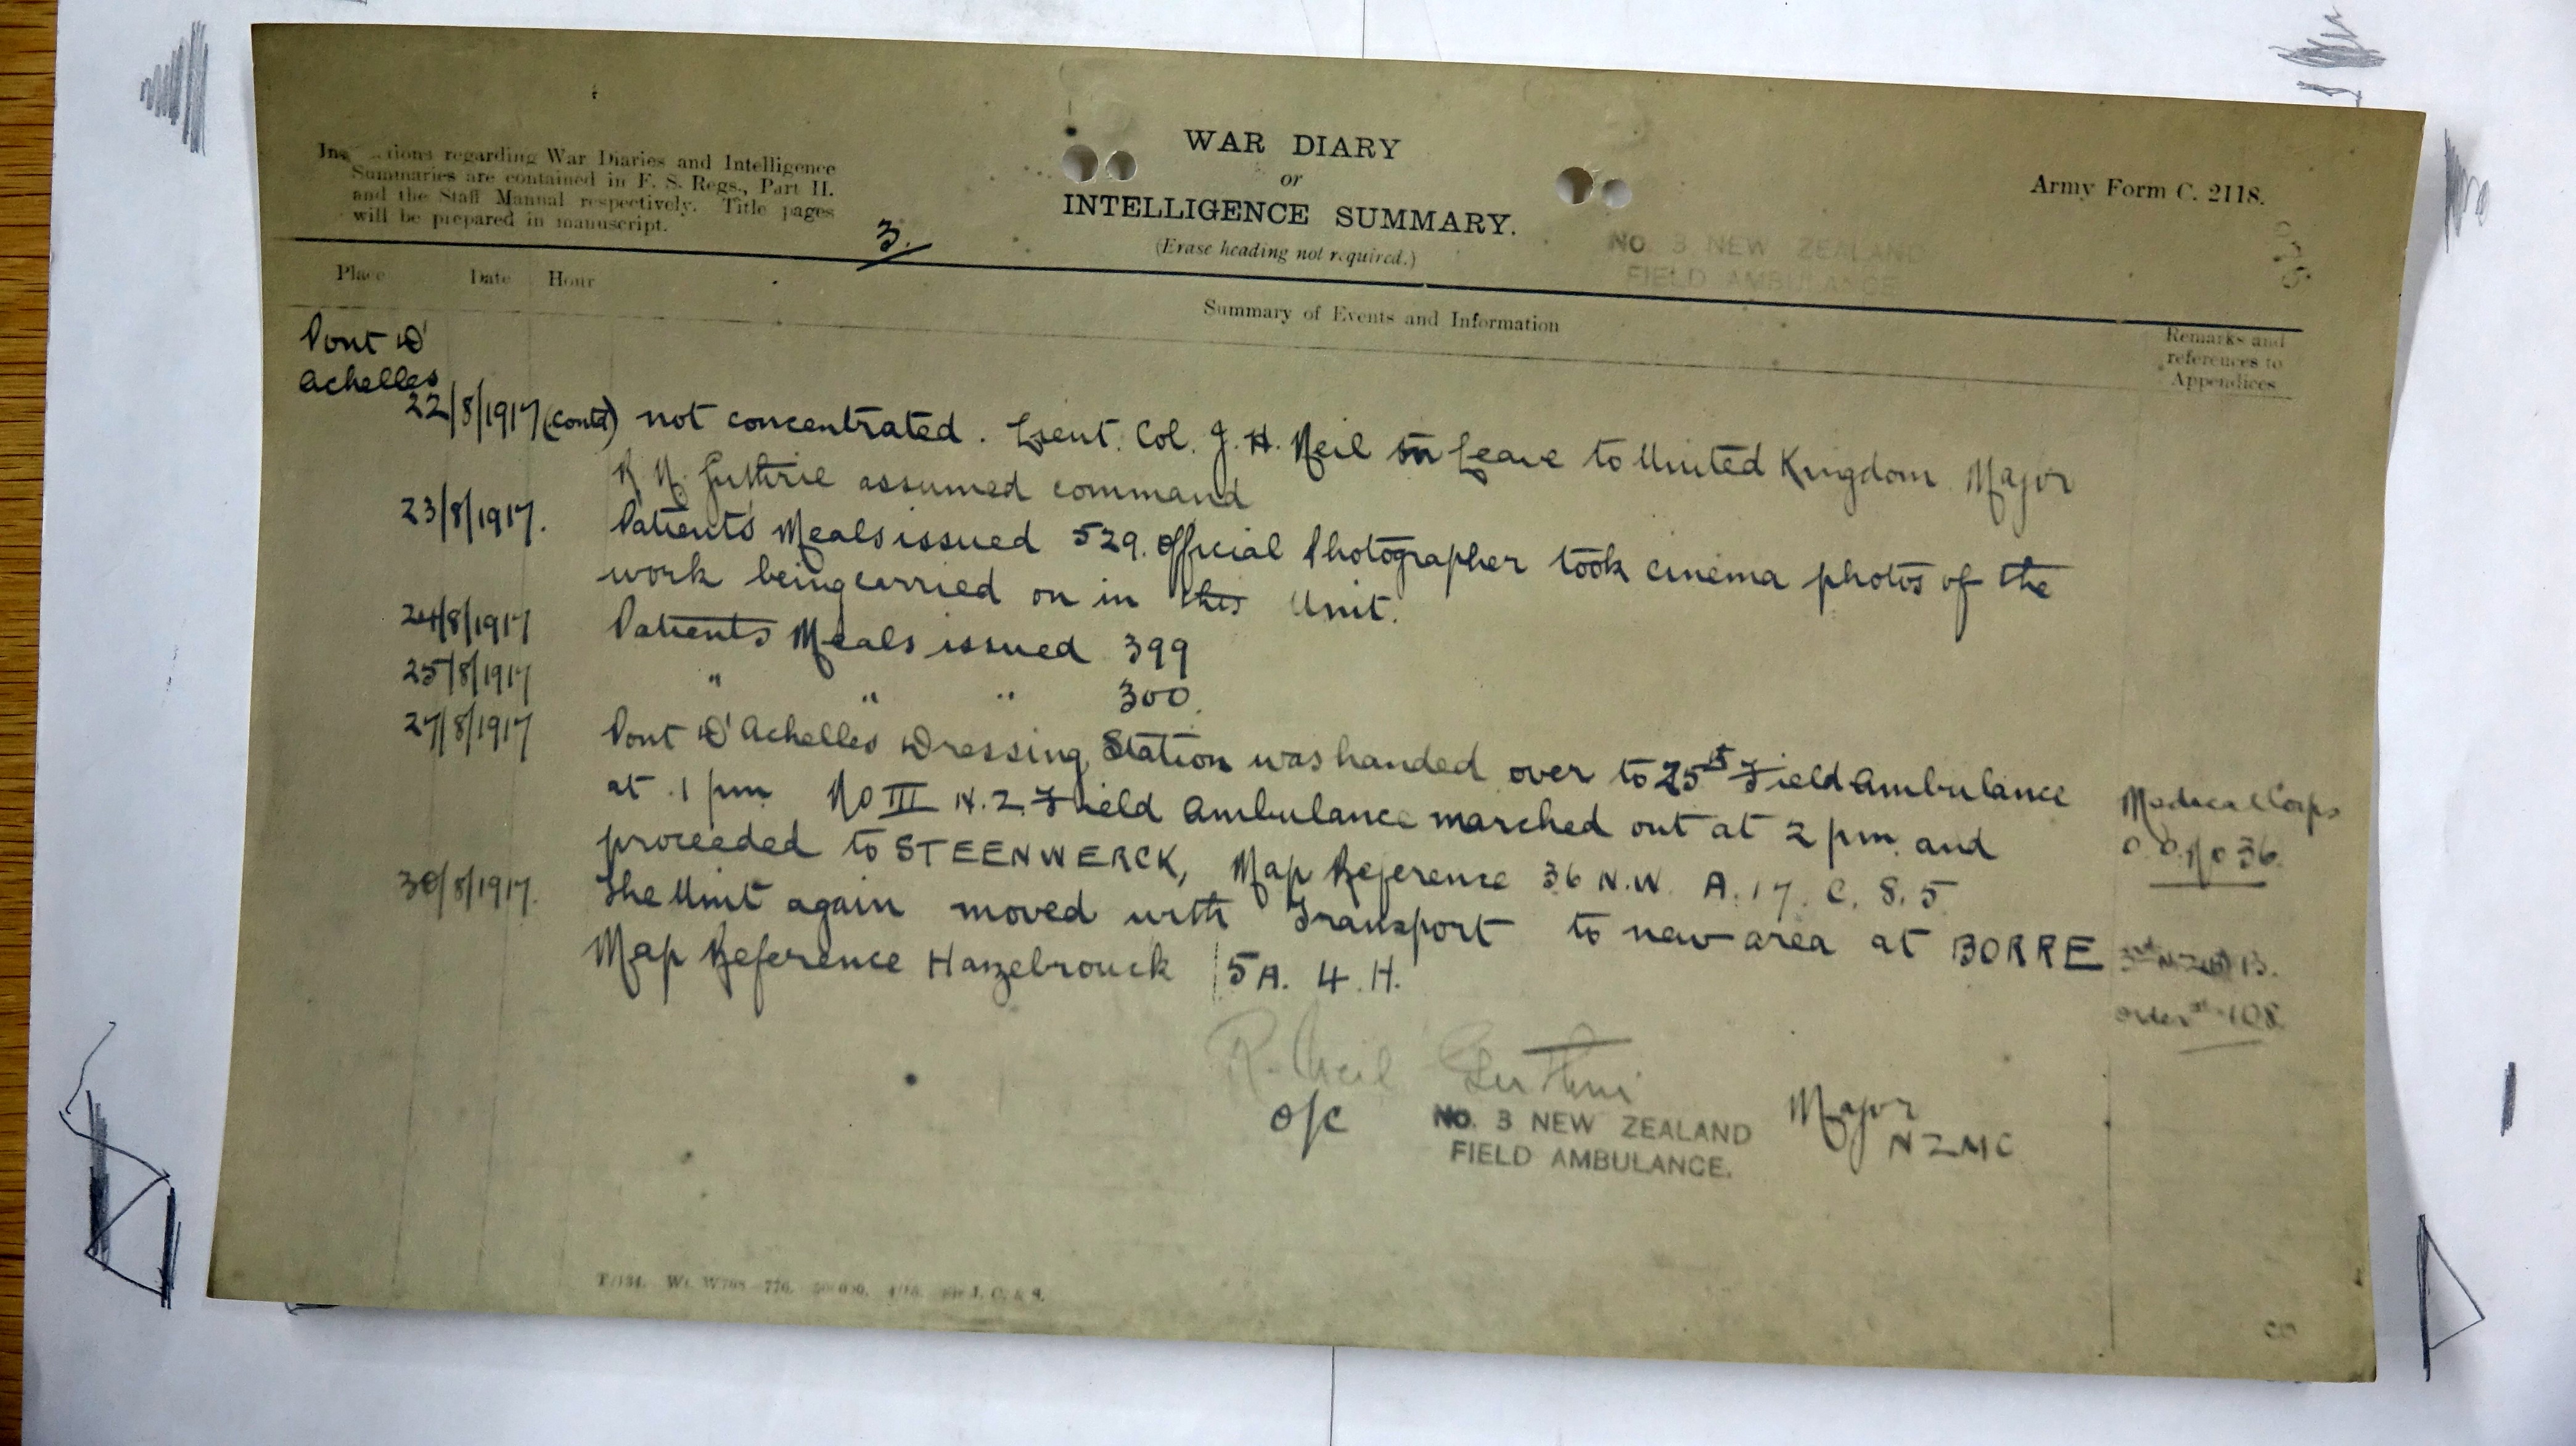 regarding War Diaries and Intelligence
Summaries are contained in F. S. Regs., Part II.
and the Staff Manual respectively. Title pages
will be prepared in manuscript.
3.
WAR DIARY
or
INTELLIGENCE SUMMARY.
(Erase heading not required.)
Army Form C. 2118.
NO 3 NEW ZEALAND
FIELD AMBULANCE
Place Date Hour
Summary of Events and Information
Remarks and
references to
Appendices
Pont D'
Achelles
22/8/1917 (contd) not concentrated. Lieut. Col. J. H. Neil on Leave to United Kingdom Major
R N. Guthrie assumed command
23/8/1917. Patients Meals issued 529. Official Photographer took cinema photos of the
work being carried on in this Unit.
24/8/1917 Patients Meals issued 399
25/8/1917 " " " 300.
27/8/1917 Pont D'Achelles Dressing Station was handed over to 25th Field Ambulance
at 1 pm No III N.Z. Field Ambulance marched out at 2 pm and
proceeded to STEENWERCK, Map Reference 36 N.W. A. 17. C. 8. 5
Medical Corps
O.O. No 36.
30/8/1917. The Unit again moved with Transport to new area at BORRE
Map Reference Hazebrouck 5A. 4. H.
order 108
R. Neil Guthrie
O/C NO. 3 NEW ZEALAND
FIELD AMBULANCE.
Major
NZMC